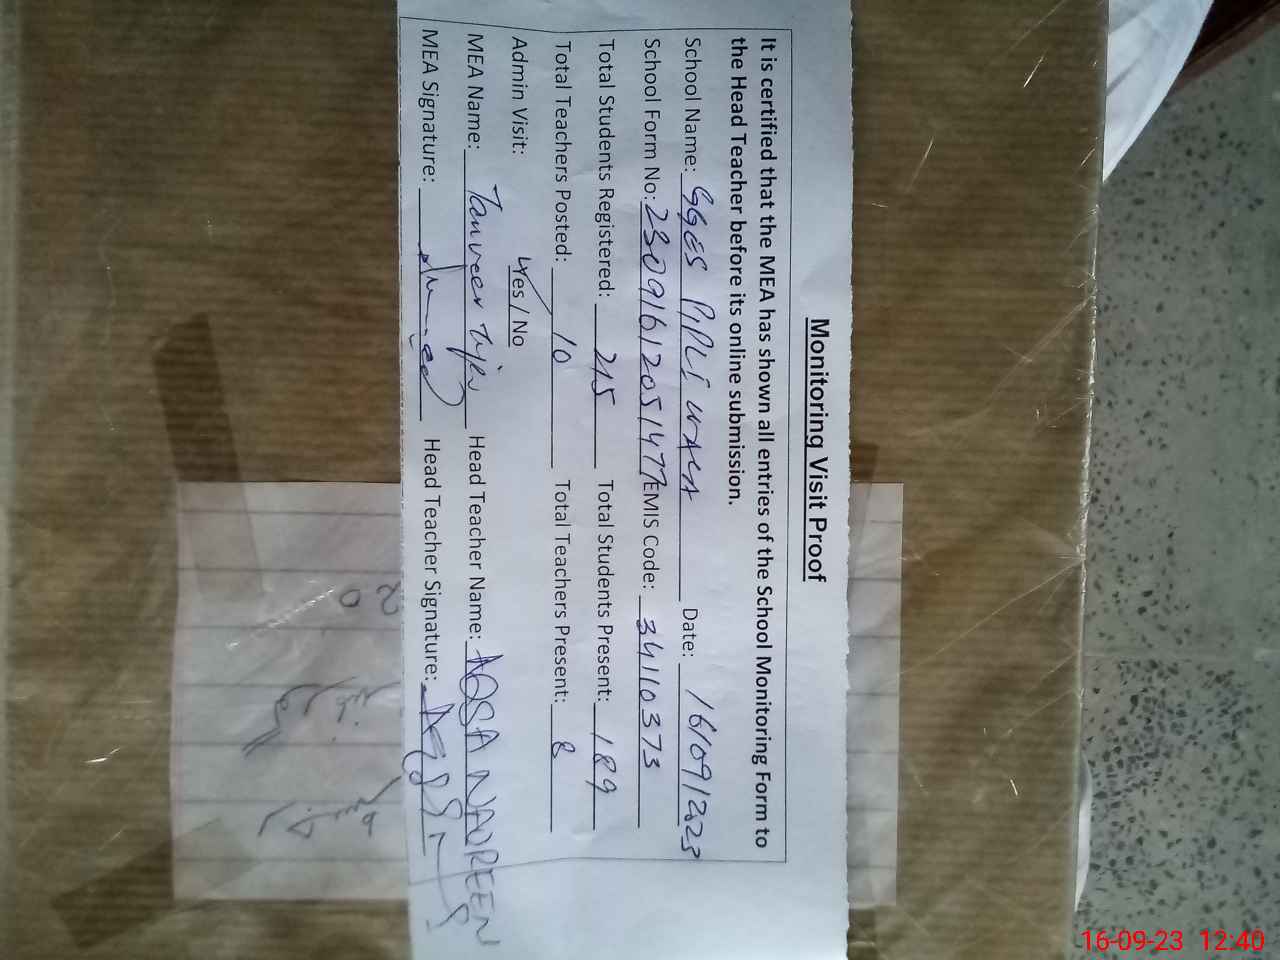 Monitoring Visit Proof
It is certified that the MEA has shown all entries of the School Monitoring Form to
the Head Teacher before its online submission.
School Name: GGES PIPLI WALA Date: 16/09/2023
School Form No: 23091612051477 EMIS Code: 34110373
Total Students Registered: 215 Total Students Present: 189
Total Teachers Posted: 10 Total Teachers Present: 8
Admin Visit: Yes / No
MEA Name: Tanveer Head Teacher Name: AQSA NAUREEN
MEA Signature: Head Teacher Signature:
16-09-23 12:40